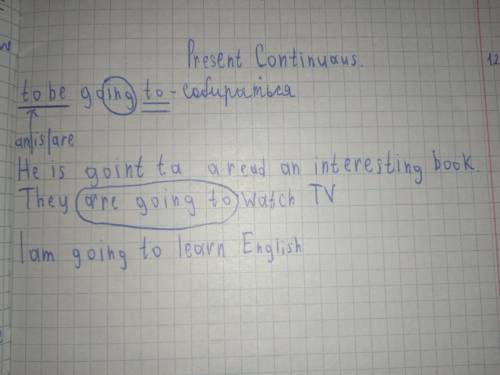 Present Continuaus.
to be going to - собираться
am/is/are
He is goint ta a read an interesting book.
They are going to watch TV
I am going to learn English
12